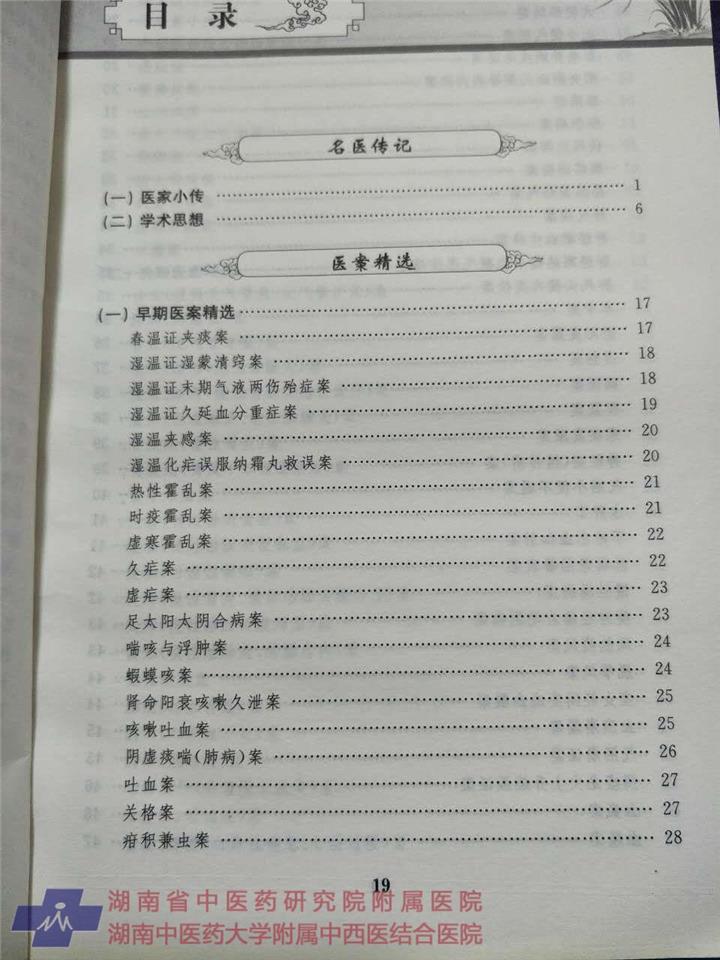 目 录
名医传记
(一) 医家小传 …… 1
(二) 学术思想 …… 6
医案精选
(一) 早期医案精选 …… 17
春温证夹痰案 …… 17
湿温证湿蒙清窍案 …… 18
湿温证末期气液两伤殆症案 …… 18
湿温证久延血分重症案 …… 19
湿温夹感案 …… 20
湿温化疟误服纳霜丸救误案 …… 20
热性霍乱案 …… 21
时疫霍乱案 …… 21
虚寒霍乱案 …… 22
久疟案 …… 22
虚疟案 …… 23
足太阳太阴合病案 …… 23
喘咳与浮肿案 …… 24
蝦蟆咳案 …… 24
肾命阳衰咳嗽久泄案 …… 25
咳嗽吐血案 …… 25
阴虚痰喘(肺病)案 …… 26
吐血案 …… 27
关格案 …… 27
疳积兼虫案 …… 28
19
湖南省中医药研究院附属医院
湖南中医药大学附属中西医结合医院